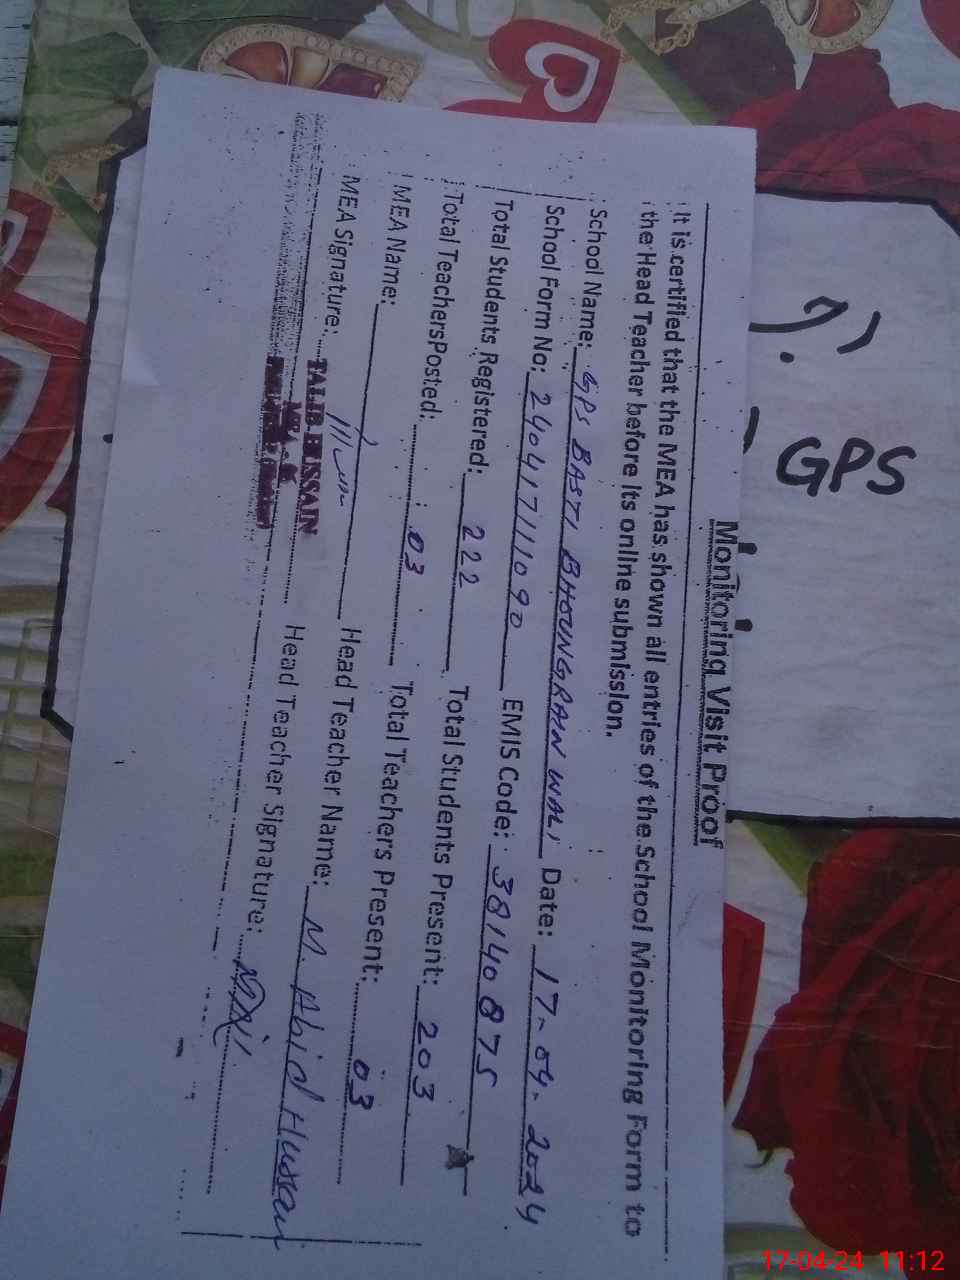 Monitoring Visit Proof
It is certified that the MEA has shown all entries of the School Monitoring Form to
the Head Teacher before its online submission.
School Name: GPS BASTI BHOUNGRAIN WALI Date: 17-04-2024
School Form No: 24041711090 EMIS Code: 38140875
Total Students Registered: 222 Total Students Present: 203
Total TeachersPosted: 03 Total Teachers Present: 03
MEA Name: Head Teacher Name: M. Abid Hussain
MEA Signature: Head Teacher Signature:
TALIB HUSSAIN
GPS
17-04-24 11:12